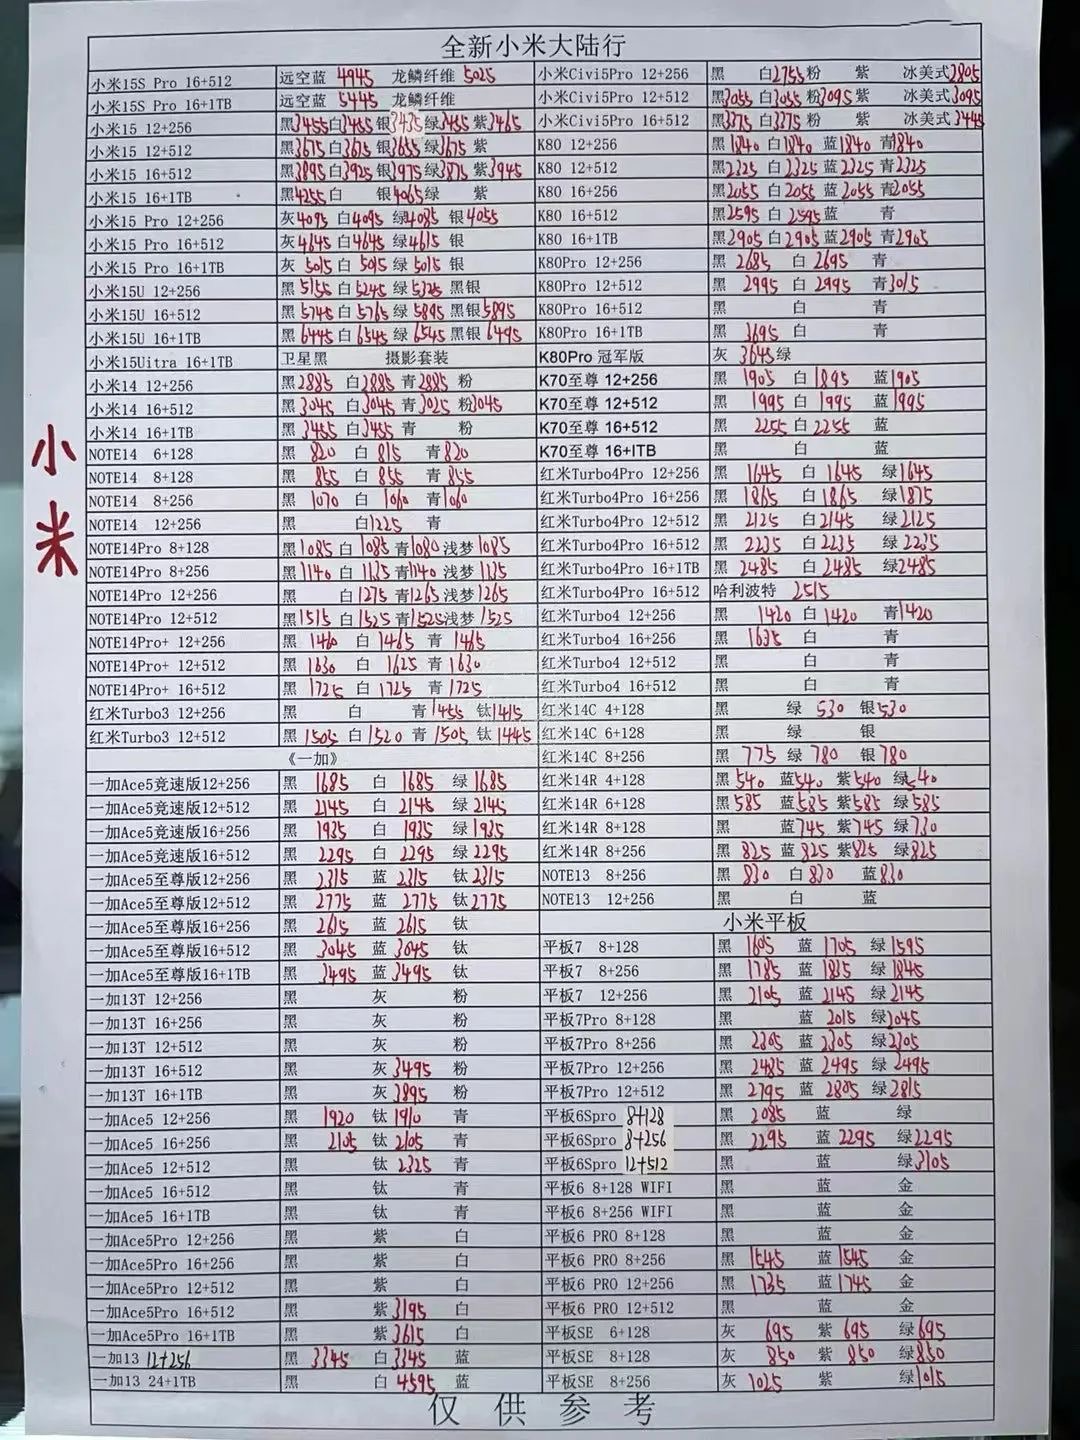 全新小米大陆行
小米15S Pro 16+512 远空蓝 4945 龙鳞纤维 5025
小米15S Pro 16+1TB 远空蓝 5445 龙鳞纤维
小米15 12+256 黑3455白3455 银3435绿3455 紫3465
小米15 12+512 黑3675白3675 银3655绿3675 紫
小米15 16+512 黑3895白3925银3975绿3875 紫3945
小米15 16+1TB 黑4255白 银4065绿 紫
小米15 Pro 12+256 灰4095 白4095 绿4085 银4055
小米15 Pro 16+512 灰4645白4645 绿4615 银
小米15 Pro 16+1TB 灰 5015白 5015 绿 5015 银
小米15U 12+256 黑 5155 白5245 绿5325 黑银
小米15U 16+512 黑 5745 白5765 绿 5895 黑银5895
小米15U 16+1TB 黑 6445 白 6545 绿 6545 黑银 6495
小米15Uitra 16+1TB 卫星黑 摄影套装
小米14 12+256 黑2885 白2885 青2885 粉
小米14 16+512 黑3045 白3045 青3025 粉3045
小米14 16+1TB 黑3455 白3455 青 粉
NOTE14 6+128 黑 820 白 815 青820
NOTE14 8+128 黑 855 白 855 青 855
NOTE14 8+256 黑 1070 白 1060 青1060
NOTE14 12+256 黑 白1225 青
NOTE14Pro 8+128 黑1085 白 1085 青1080 浅梦1085
NOTE14Pro 8+256 黑1140 白 1135 青1140 浅梦 1135
NOTE14Pro 12+256 黑 白1275 青1265浅梦1265
NOTE14Pro 12+512 黑1515 白1525青1525浅梦 1525
NOTE14Pro+ 12+256 黑 1460 白 1465 青 1465
NOTE14Pro+ 12+512 黑 1630 白 1625 青 1630
NOTE14Pro+ 16+512 黑 1725 白 1725 青 1725
红米Turbo3 12+256 黑 白 青1455 钛1415
红米Turbo3 12+512 黑 1505 白1520 青1505 钛1445
《一加》
一加Ace5竞速版12+256 黑 1685 白 1685 绿 1685
一加Ace5竞速版12+512 黑 2145 白 2145 绿 2145
一加Ace5竞速版16+256 黑 1935 白 1935 绿1935
一加Ace5竞速版16+512 黑 2295 白 2295 绿 2295
一加Ace5至尊版12+256 黑 2315 蓝 2315 钛2315
一加Ace5至尊版12+512 黑 2775 蓝 2775 钛2775
一加Ace5至尊版16+256 黑 2615 蓝 2615 钛
一加Ace5至尊版16+512 黑 3045 蓝 3045 钛
一加Ace5至尊版16+1TB 黑 3495 蓝3495 钛
一加13T 12+256 黑 灰 粉
一加13T 16+256 黑 灰 粉
一加13T 12+512 黑 灰 粉
一加13T 16+512 黑 灰 3495 粉
一加13T 16+1TB 黑 灰 3895 粉
一加Ace5 12+256 黑 1920 钛 1910 青
一加Ace5 16+256 黑 2105 钛 2105 青
一加Ace5 12+512 黑 钛 2325 青
一加Ace5 16+512 黑 钛 青
一加Ace5 16+1TB 黑 钛 青
一加Ace5Pro 12+256 黑 紫 白
一加Ace5Pro 16+256 黑 紫 白
一加Ace5Pro 12+512 黑 紫 白
一加Ace5Pro 16+512 黑 紫3195 白
一加Ace5Pro 16+1TB 黑 紫3615 白
一加13 12+256 黑 3345 白3345 蓝
一加13 24+1TB 黑 白 4595 蓝
小米Civi5Pro 12+256 黑 白2755粉 紫 冰美式2805
小米Civi5Pro 12+512 黑3055 白3055 粉3095 紫 冰美式3095
小米Civi5Pro 16+512 黑3375 白3375 粉 紫 冰美式3445
K80 12+256 黑1840 白1840 蓝1840 青1840
K80 12+512 黑2325 白2325 蓝2325 青2325
K80 16+256 黑2055 白2055 蓝2055 青2055
K80 16+512 黑2595 白 2595蓝 青
K80 16+1TB 黑2905 白2905 蓝2905 青2905
K80Pro 12+256 黑 2685 白 2695 青
K80Pro 12+512 黑 2995 白 2995 青3015
K80Pro 16+512 黑 白 青
K80Pro 16+1TB 黑 3695 白 青
K80Pro 冠军版 灰 3645绿
K70至尊 12+256 黑 1905 白 1895 蓝1905
K70至尊 12+512 黑 1995 白 1995 蓝1995
K70至尊 16+512 黑 2255 白2255 蓝
K70至尊 16+ITB 黑 白 蓝
红米Turbo4Pro 12+256 黑 1645 白 1645 绿1645
红米Turbo4Pro 16+256 黑 1865 白 1865 绿1875
红米Turbo4Pro 12+512 黑 2125 白2145 绿2125
红米Turbo4Pro 16+512 黑 2235 白2235 绿 2235
红米Turbo4Pro 16+1TB 黑 2485 白 2485 绿2485
红米Turbo4Pro 16+512 哈利波特 2515
红米Turbo4 12+256 黑 1420 白1420 青1420
红米Turbo4 16+256 黑 1635 白 青
红米Turbo4 12+512 黑 白 青
红米Turbo4 16+512 黑 白 青
红米14C 4+128 黑 绿 530 银530
红米14C 6+128 黑 绿 银
红米14C 8+256 黑 775 绿 780 银 780
红米14R 4+128 黑 540 蓝540 紫540 绿540
红米14R 6+128 黑585 蓝585 紫585 绿585
红米14R 8+128 黑 蓝745 紫745 绿730
红米14R 8+256 黑 825 蓝 825 紫825 绿825
NOTE13 8+256 黑 830 白 830 蓝830
NOTE13 12+256 黑 白 蓝
小米平板
平板7 8+128 黑 1605 蓝 1705 绿1595
平板7 8+256 黑 1785 蓝 1835 绿1845
平板7 12+256 黑 2105 蓝 2145 绿2145
平板7Pro 8+128 黑 蓝 2015 绿2045
平板7Pro 8+256 黑 2305 蓝 2305 绿2305
平板7Pro 12+256 黑 2485 蓝 2495 绿 2495
平板7Pro 12+512 黑 2795 蓝 2805 绿2815
平板6Spro 8+128 黑 2085 蓝 绿
平板6Spro 8+256 黑 2295 蓝 2295 绿2295
平板6Spro 12+512 黑 蓝 绿3105
平板6 8+128 WIFI 黑 蓝 金
平板6 8+256 WIFI 黑 蓝 金
平板6 PRO 8+128 黑 蓝 金
平板6 PRO 8+256 黑 1545 蓝1545 金
平板6 PRO 12+256 黑 1735 蓝1745 金
平板6 PRO 12+512 黑 蓝 金
平板SE 6+128 灰 695 紫 695 绿695
平板SE 8+128 灰 850 紫 850 绿850
平板SE 8+256 灰 1025 紫 绿1015
仅供参考
小米